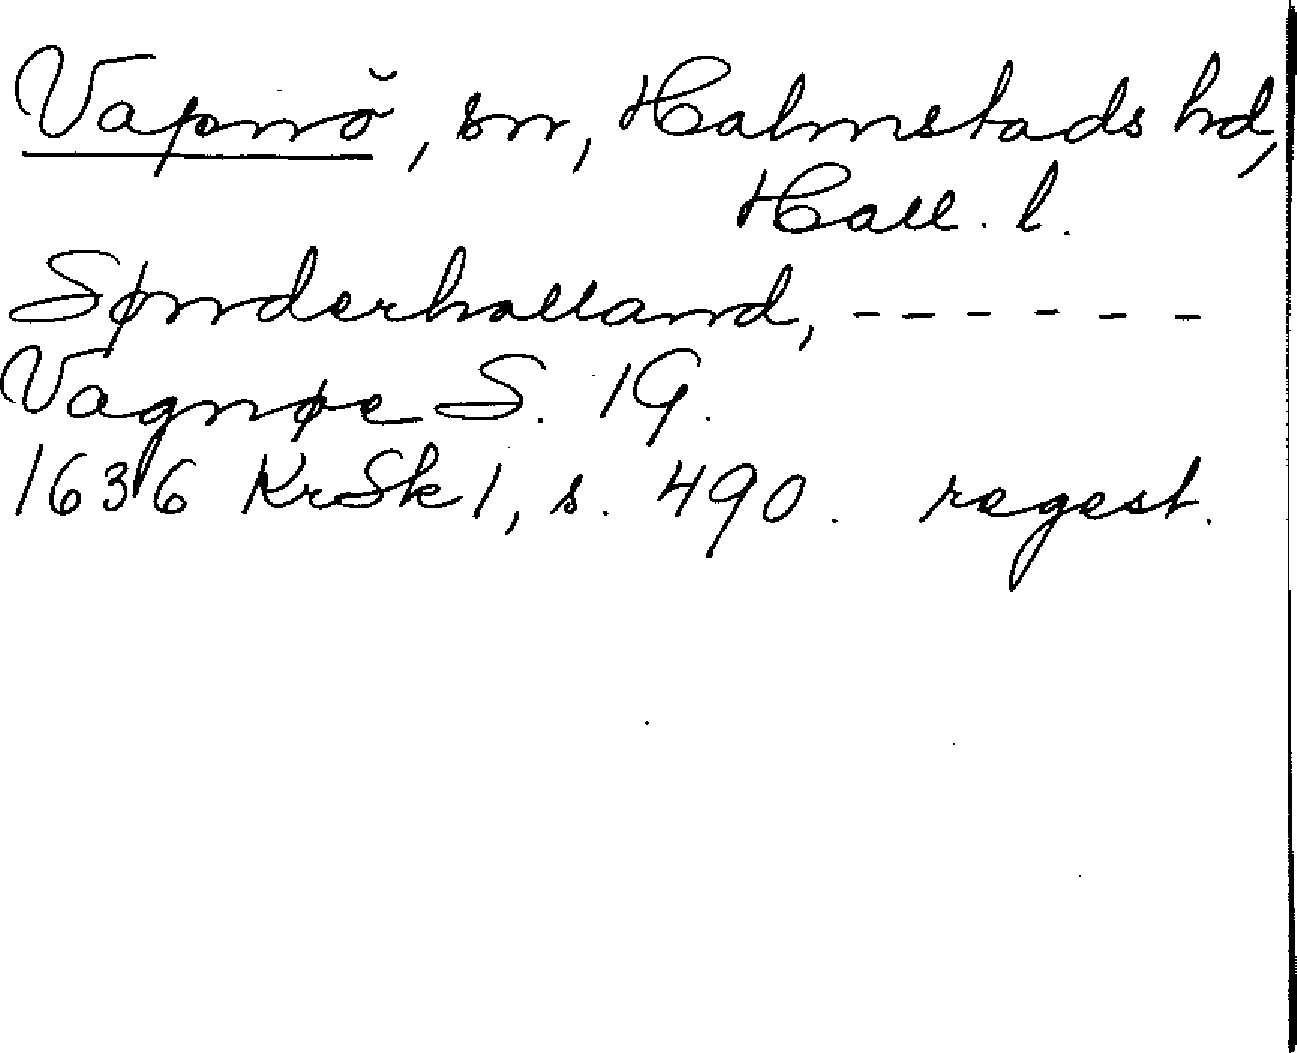 Vapnö, sn, Halmstads hd,
Hall. l.
Sønderhalland, - - - - - -
Vagnøe S. 1G.
1636 KrSk1, s. 490. regest.